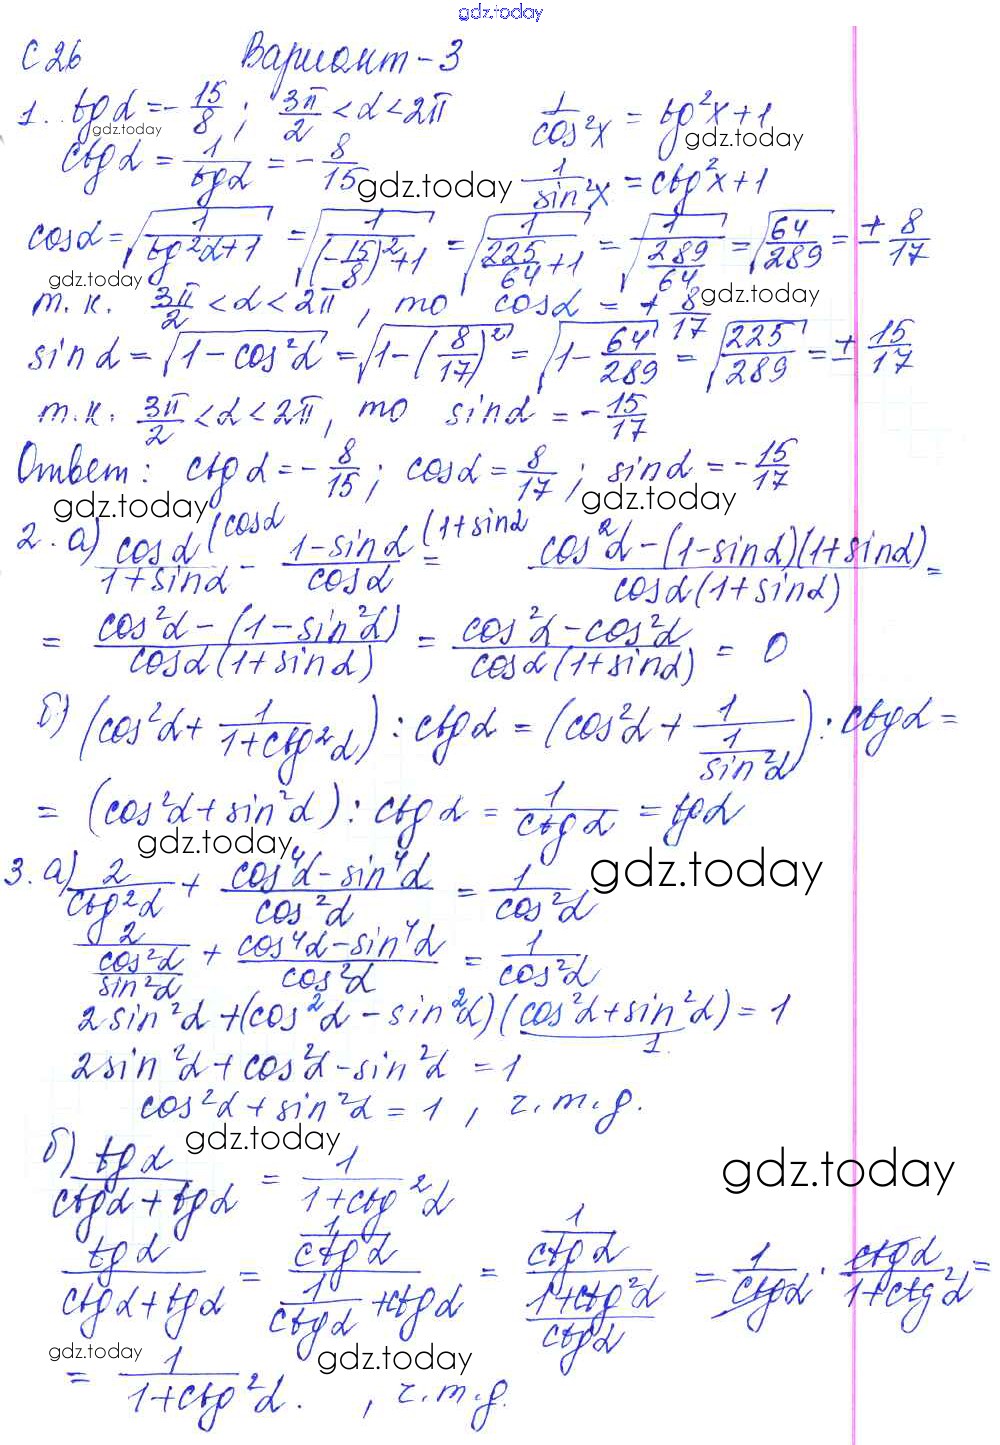 gdz.today
С 26 Вариант-3
1. tgα = -15/8 ; 3π/2 < α < 2π 1/cos²x = tg²x+1
gdz.today gdz.today
ctgα = 1/tgα = -8/15 gdz.today 1/sin²x = ctg²x+1
cosα = √(1/(tg²α+1)) = √(1/((-15/8)²+1)) = √(1/(225/64+1)) = √(1/(289/64)) = √(64/289) = ± 8/17
gdz.today gdz.today
т.к. 3π/2 < α < 2π, то cosα = + 8/17
sinα = √(1-cos²α) = √(1-(8/17)²) = √(1-64/289) = √(225/289) = ± 15/17
т.к. 3π/2 < α < 2π, то sinα = -15/17
Ответ: ctgα = -8/15 ; cosα = 8/17 ; sinα = -15/17
gdz.today gdz.today
2. а) cosα/(1+sinα) (cosα - (1-sinα)/cosα (1+sinα = (cos²α-(1-sinα)(1+sinα))/(cosα(1+sinα)) =
= (cos²α-(1-sin²α))/(cosα(1+sinα)) = (cos²α-cos²α)/(cosα(1+sinα)) = 0
б) (cos²α + 1/(1+ctg²α)) : ctgα = (cos²α + 1/(1/sin²α)) : ctgα =
= (cos²α+sin²α) : ctgα = 1/ctgα = tgα
gdz.today gdz.today
3. а) 2/ctg²α + (cos⁴α-sin⁴α)/cos²α = 1/cos²α
2/(cos²α/sin²α) + (cos⁴α-sin⁴α)/cos²α = 1/cos²α
2sin²α+(cos²α-sin²α)(cos²α+sin²α) = 1
1
2sin²α+cos²α-sin²α = 1
cos²α+sin²α = 1, ч.т.д.
gdz.today gdz.today
б) tgα/(ctgα+tgα) = 1/(1+ctg²α)
tgα/(ctgα+tgα) = (1/ctgα)/(1/ctgα+ctgα) = (1/ctgα)/((1+ctg²α)/ctgα) = 1/ctgα · ctgα/(1+ctg²α) =
gdz.today gdz.today
= 1/(1+ctg²α). , ч.т.д.